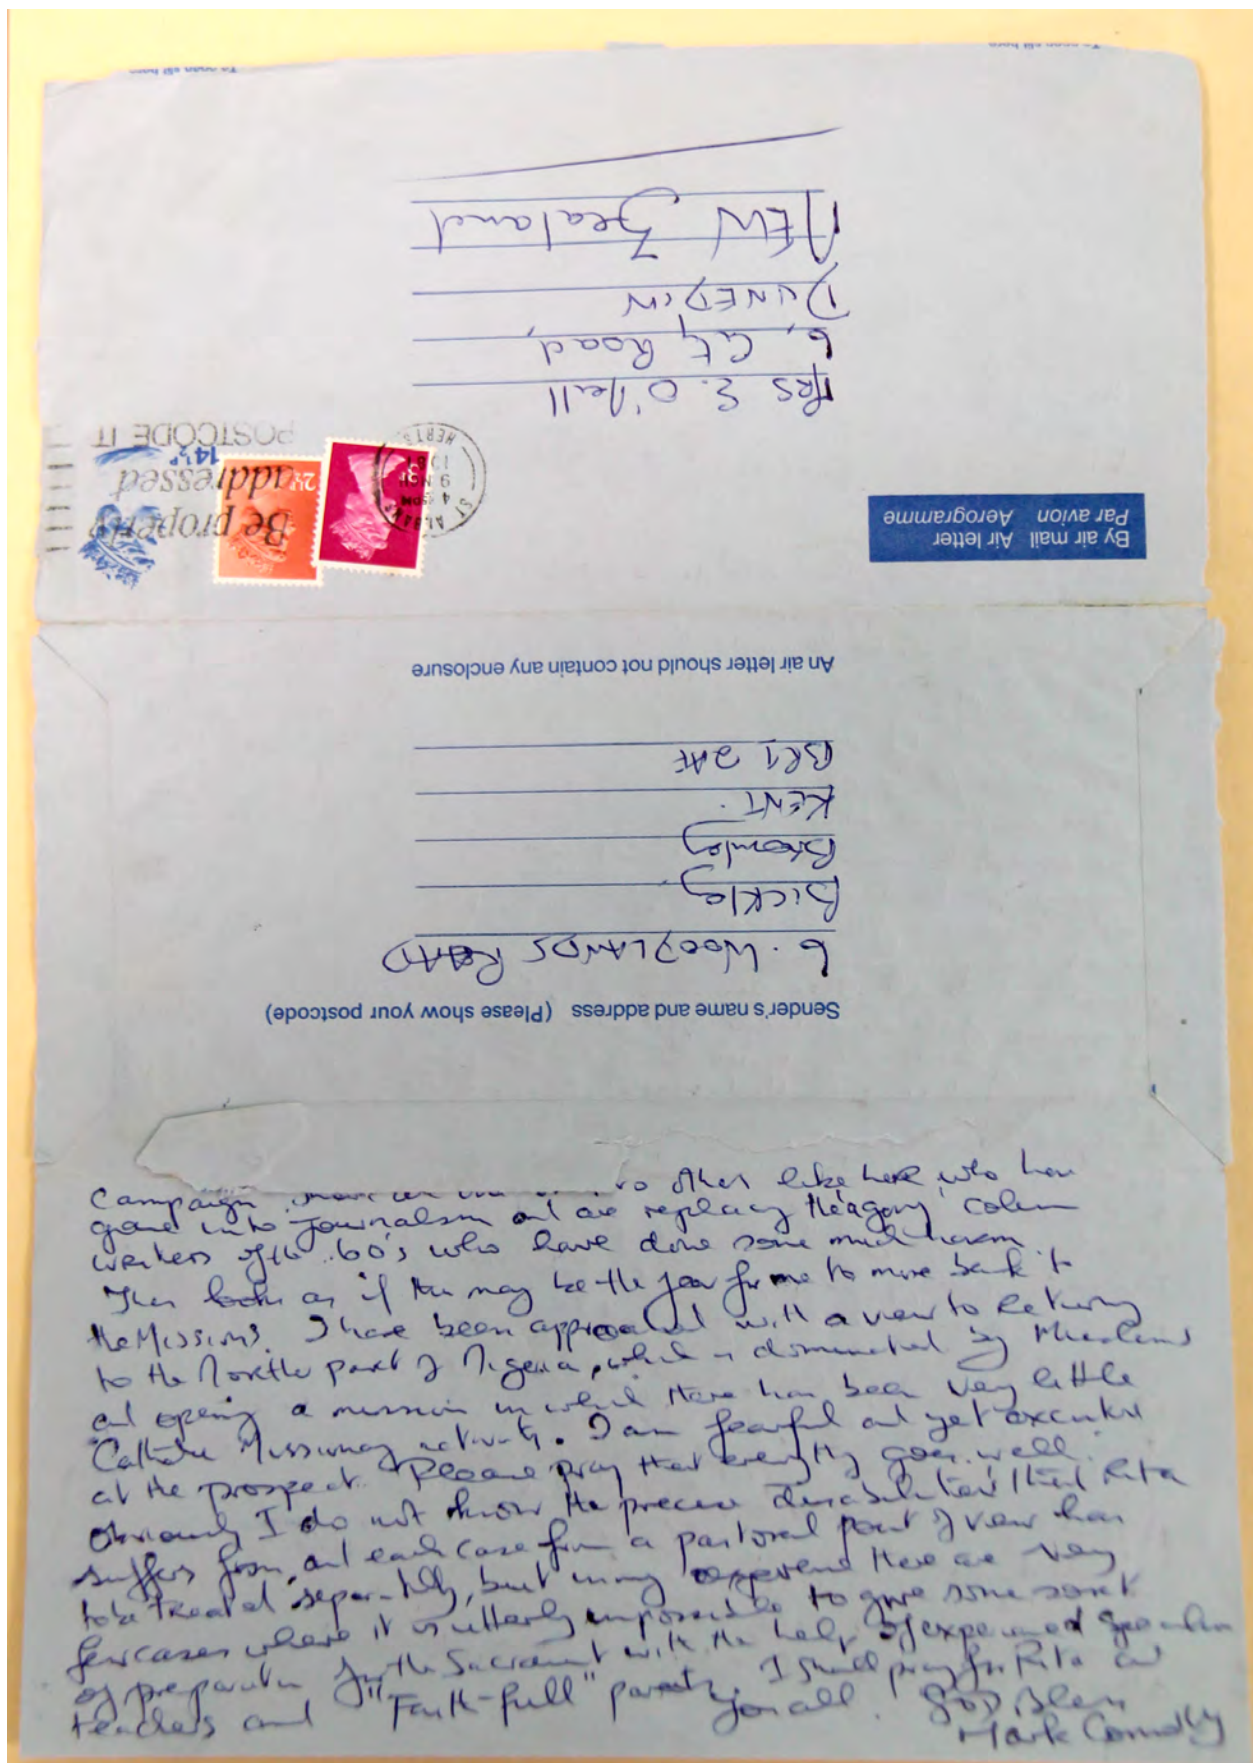 To open slit here
To open slit here
NEW Zealand
DUNEDIN
6, City Road,
MRS E. O'Neill
POSTCODE IT
14½P
addressed
Be properly
2½P
3P
ST ALBANS
4 PM
9 MCH
1981
HERTS
By air mail Air letter
Par avion Aerogramme
An air letter should not contain any enclosure
BR1 2AF
KENT.
Bromley
Bickley
6. WOODLANDS ROAD
Sender's name and address (Please show your postcode)
Campaign. others like her who have
gone into Journalism and are replacing the 'agony' column
writers of the .60's who have done some much harm.
Then looks as if this may be the year for me to move back to
the Missions. I have been approached with a view to returning
to the North part of Nigeria, which is dominated by Muslims
and opening a mission in which there has been very little
Catholic Missionary activity. I am fearful and yet excited
at the prospect. Please pray that everything goes well.
Obviously I do not know the precise disabilities that Rita
suffers from, and each case from a pastoral point of view has
to be treated separately, but in my experience there are very
few cases where it is utterly impossible to give some sort
of preparation for the Sacrament with the help of experienced
teachers and "Faith-full" parents. I shall pray for Rita and
you all. God Bless
Mark Connolly